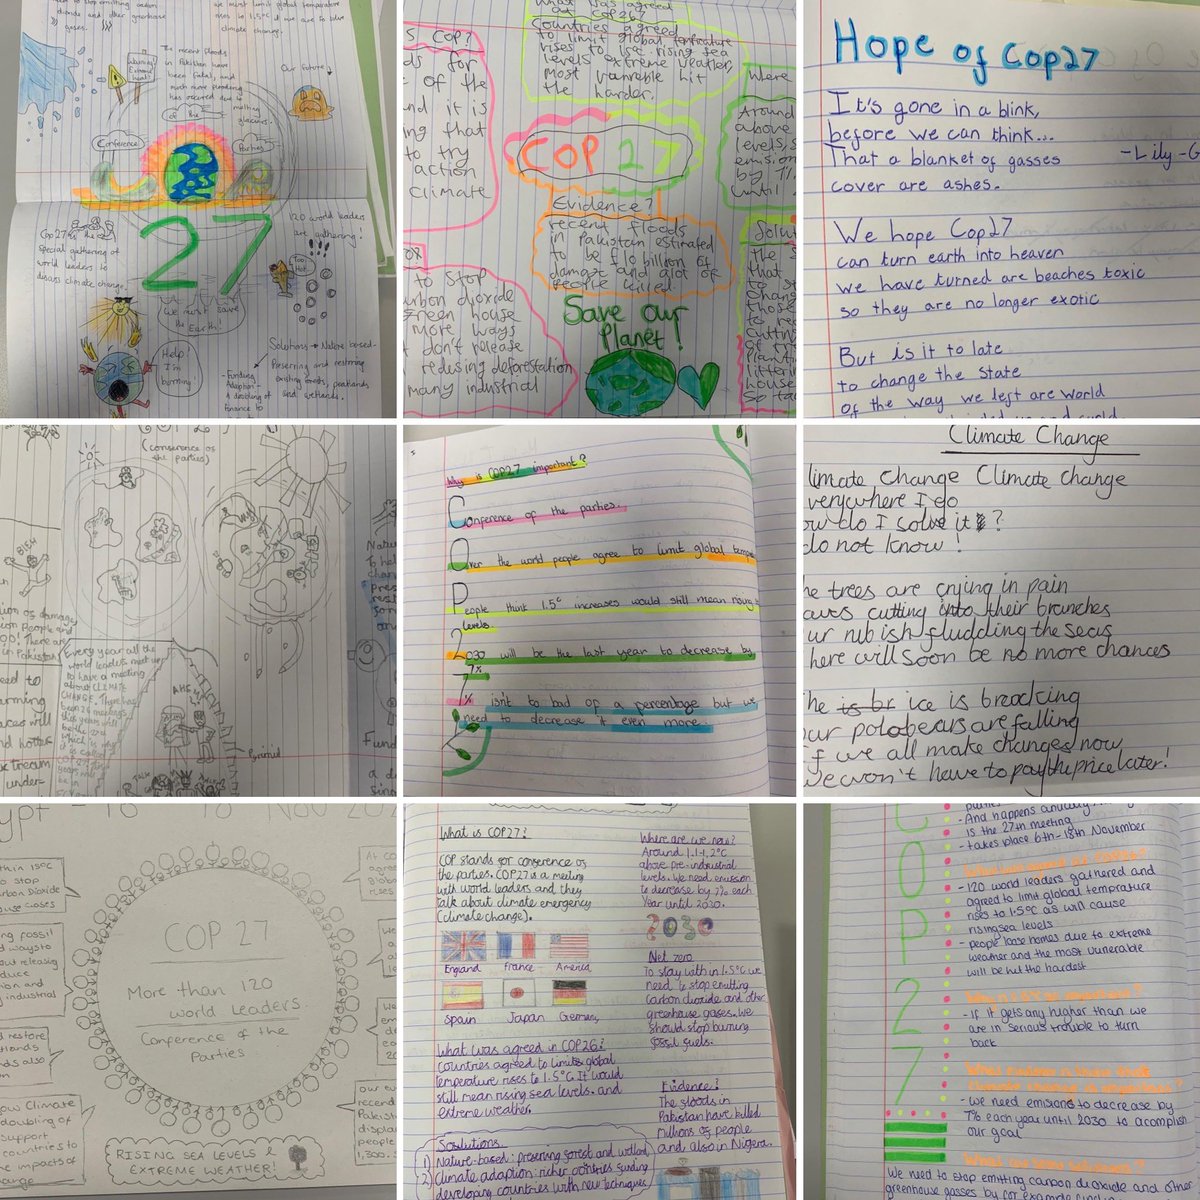 gases.
must limit global temperature
rises to 1.5°C if we are to solve
climate change.
Warning!
Extreme
heat!
The recent floods
in Pakistan have
been fatal, and
much more flooding
has occured due to
melting
of the
glaciers.
Our future
Conference
Parties
27
Cop 27 is the
special gathering of
world leaders to
discuss climate change.
120 world leaders
are gathering!
Too
Hot
We must save
the Earth!
Help!
I'm
burning!
Solutions → Nature based -
Preserving and restoring
existing forests, peatlands
and wetlands.
- Funding
Adaption -
A doubling of
finance to
S COP?
ds for
t of the
nd it is
ing that
to try
action
climate
What was agreed
at COP 26?
Countries agreed
to limit global temprature
rises to 1.5c rising sea
levels extreme weather,
most vunrable hit
the harder.
COP 27
Evidence?
recent floods
in Pakistan estimated
to be £10 billion of
damage and alot of
people killed.
Save our
Planet!
to stop
arbon dioxide
green house
more ways
t don't release
redusing deforestation
many industrial
Where
Around
above
levels,
emision
by 7%
until
Solut
the
that
to s
chang
those
to re
cutting
of
planti
litterin
house
so ta
Hope of Cop27
It's gone in a blink,
before we can think...
That a blanket of gasses
cover are ashes.
-Lily-G
We hope Cop27
can turn earth into heaven
we have turned are beaches toxic
so they are no longer exotic
But is it to late
to change the state
of the way we left are world
(conserence os
the parties)
BLEH
Every year all the
world leaders meet up
to have a meeting
about CLIMATE
CHANGE. There has
been 26 meetings
this year will
be the 27th
AHH
Pyrimid
Why is COP27 important?
Conference of the parties.
Over the world people agree to limit global temp
People think 1.5°c increases would still mean rising
levels.
2030 will be the last year to decrease by
7%
7% isn't to bad of a percentage but we
need to decrease it even more.
Climate Change
limate Change Climate change
verywhere I go
ow do I solve it?
do not know!
he trees are crying in pain
aves cutting into their branches
ur rubish fludding the seas
here will soon be no more chances
he is br ice is breacking
ur polabears are falling
if we all make changes now
we won't have to pay the price later!
ypt - 16 - 18 Nov/20
thin 1.5°C
o stop
arbon dioxide
ouse gases
ng fossil
d ways to
out releasing
duce
ion and
industrial
d restore
tlands
nds also
on
ow climate
doubling of
support
countries to
e impacts of
nge
COP 27
More than 120
world leaders
Conference of the
Parties
RISING SEA LEVELS &
EXTREME WEATHER!
At CO
agree
global
rises
We
em
de
20
Our ev
recen
Pakis
displa
people
1,300.
What is COP27?
COP stands for conference os
the parties. COP27 is a meeting
with world leaders and they
talk about climate emergency
(climate change).
England France America
Spain Japan German,
What was agreed in COP26?
Countries agreed to limits global
temperature rises to 1.5°C. It would
still mean rising sea levels. and
extreme weather.
Soslutions
1) Nature-based: preserving forest and wetland
2) Climate adaption: richer countries funding
developing countries with new techniques.
Where are we now?
Around 1.1-1.2°C
above pre-industrial
levels. We need emission
to decrease by 7% each
year until 2030.
2030
Net zero
To stay with in 1.5°C we
need to stop emitting
Carbon dioxide and other
greenhouse gases. We
should stop burning
fossil fuels.
Evidence!
The floods in
Pakistan have killed
millions of people
and also in Nigeria.
COP27
- And happens annually
is the 27th meeting
- takes place 6th-18th November
- 120 world leaders gathered and
agreed to limit global temprature
rises to 1.5°C as will cause
rising sea levels
- people lose homes due to extreme
weather and the most vunerable
will be hit the hardest
- if it gets any higher than we
are in serious trouble to turn
back
- we need emisions to decrease by
7% each year until 2030 to acomplish
our goal
We need to stop emitting carpon dioxide and other